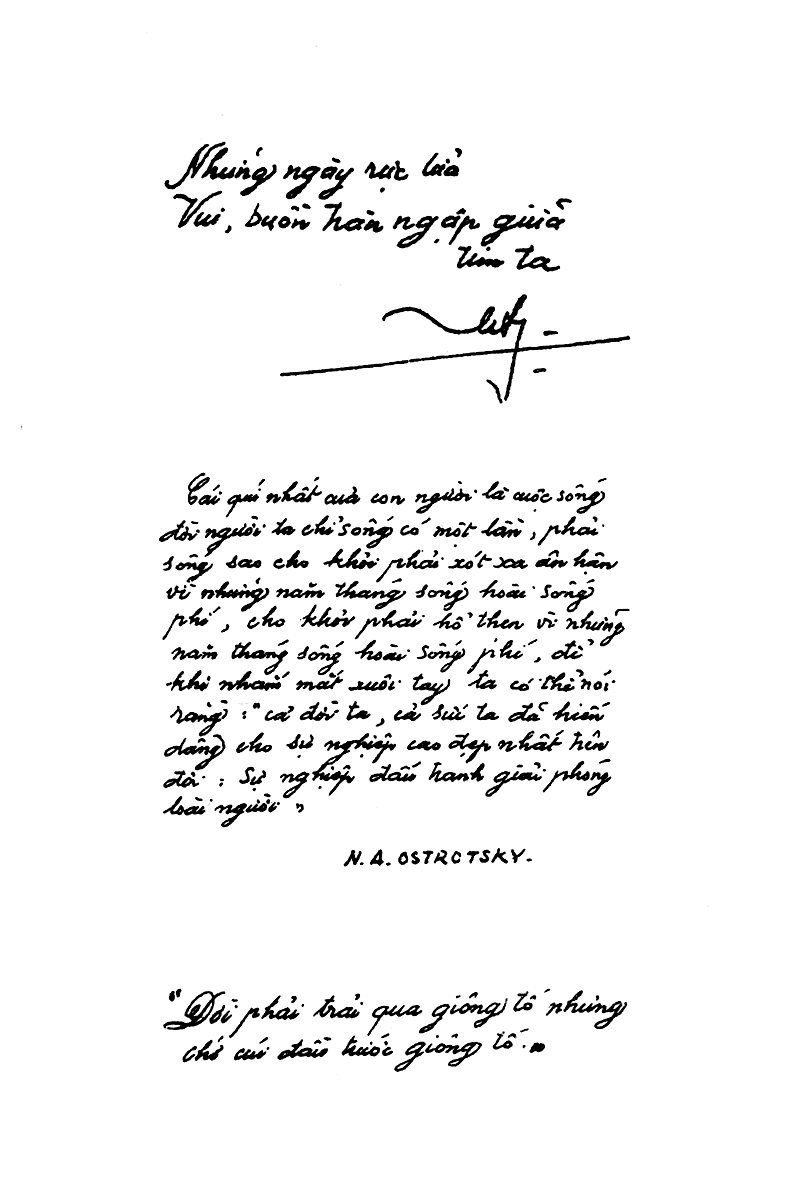 Những ngày rực lửa
Vui, buồn tràn ngập giữa
tim ta
Cái quí nhất của con người là cuộc sống
đời người ta chỉ sống có một lần, phải
sống sao cho khỏi phải xót xa ân hận
vì những năm tháng sống hoài sống
phí, cho khỏi phải hổ thẹn vì những
năm tháng sống hoài sống phí, để
khi nhắm mắt xuôi tay ta có thể nói
rằng : "cả đời ta, cả sức ta đã hiến
dâng cho sự nghiệp cao đẹp nhất trên
đời : Sự nghiệp đấu tranh giải phóng
loài người "
N. A. OSTROTSKY.
"Đời phải trải qua giông tố nhưng
chớ cúi đầu trước giông tố."